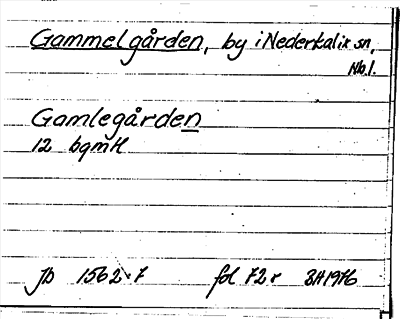 Gammelgården, by i Nederkalix sn,
Nb.l.
Gamlegården
12 bgmH
Jb 1562:7 fol 72r BH1976